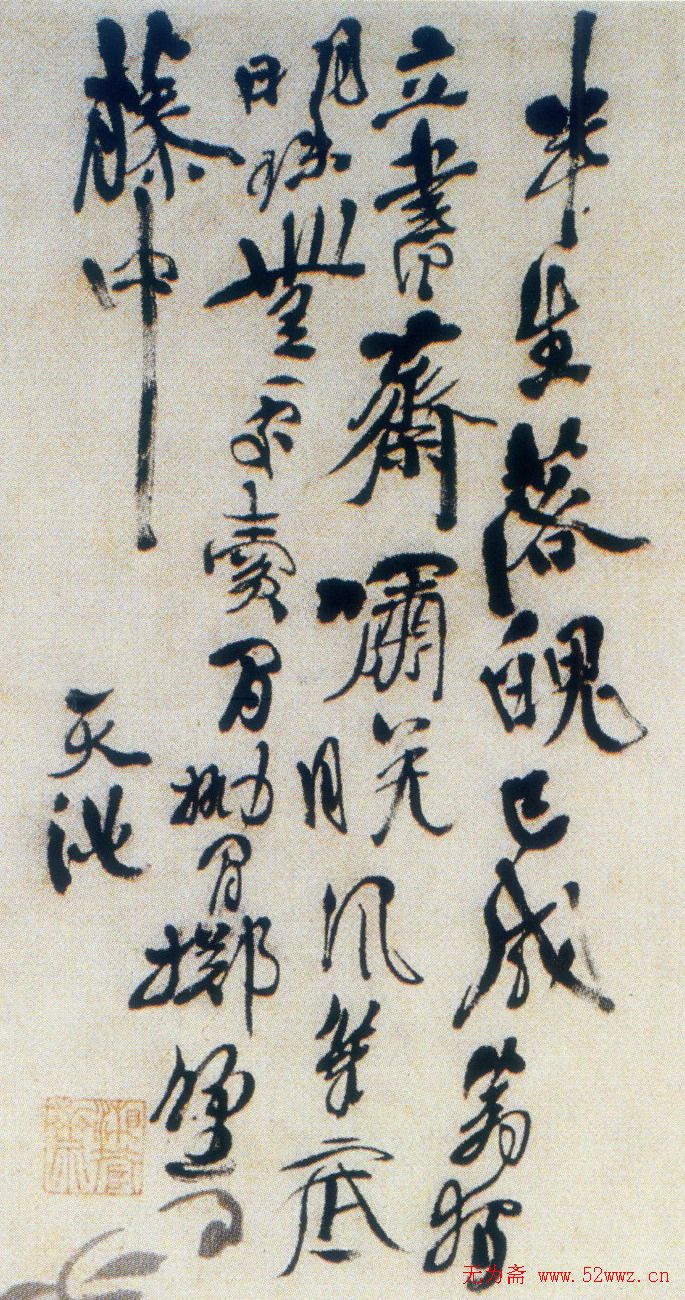 半生落魄已成翁獨
立書齋嘯晚風筆底
明珠無處賣閒拋閒擲野
藤中
天池
湘管齋
无为斋 www.52wwz.cn